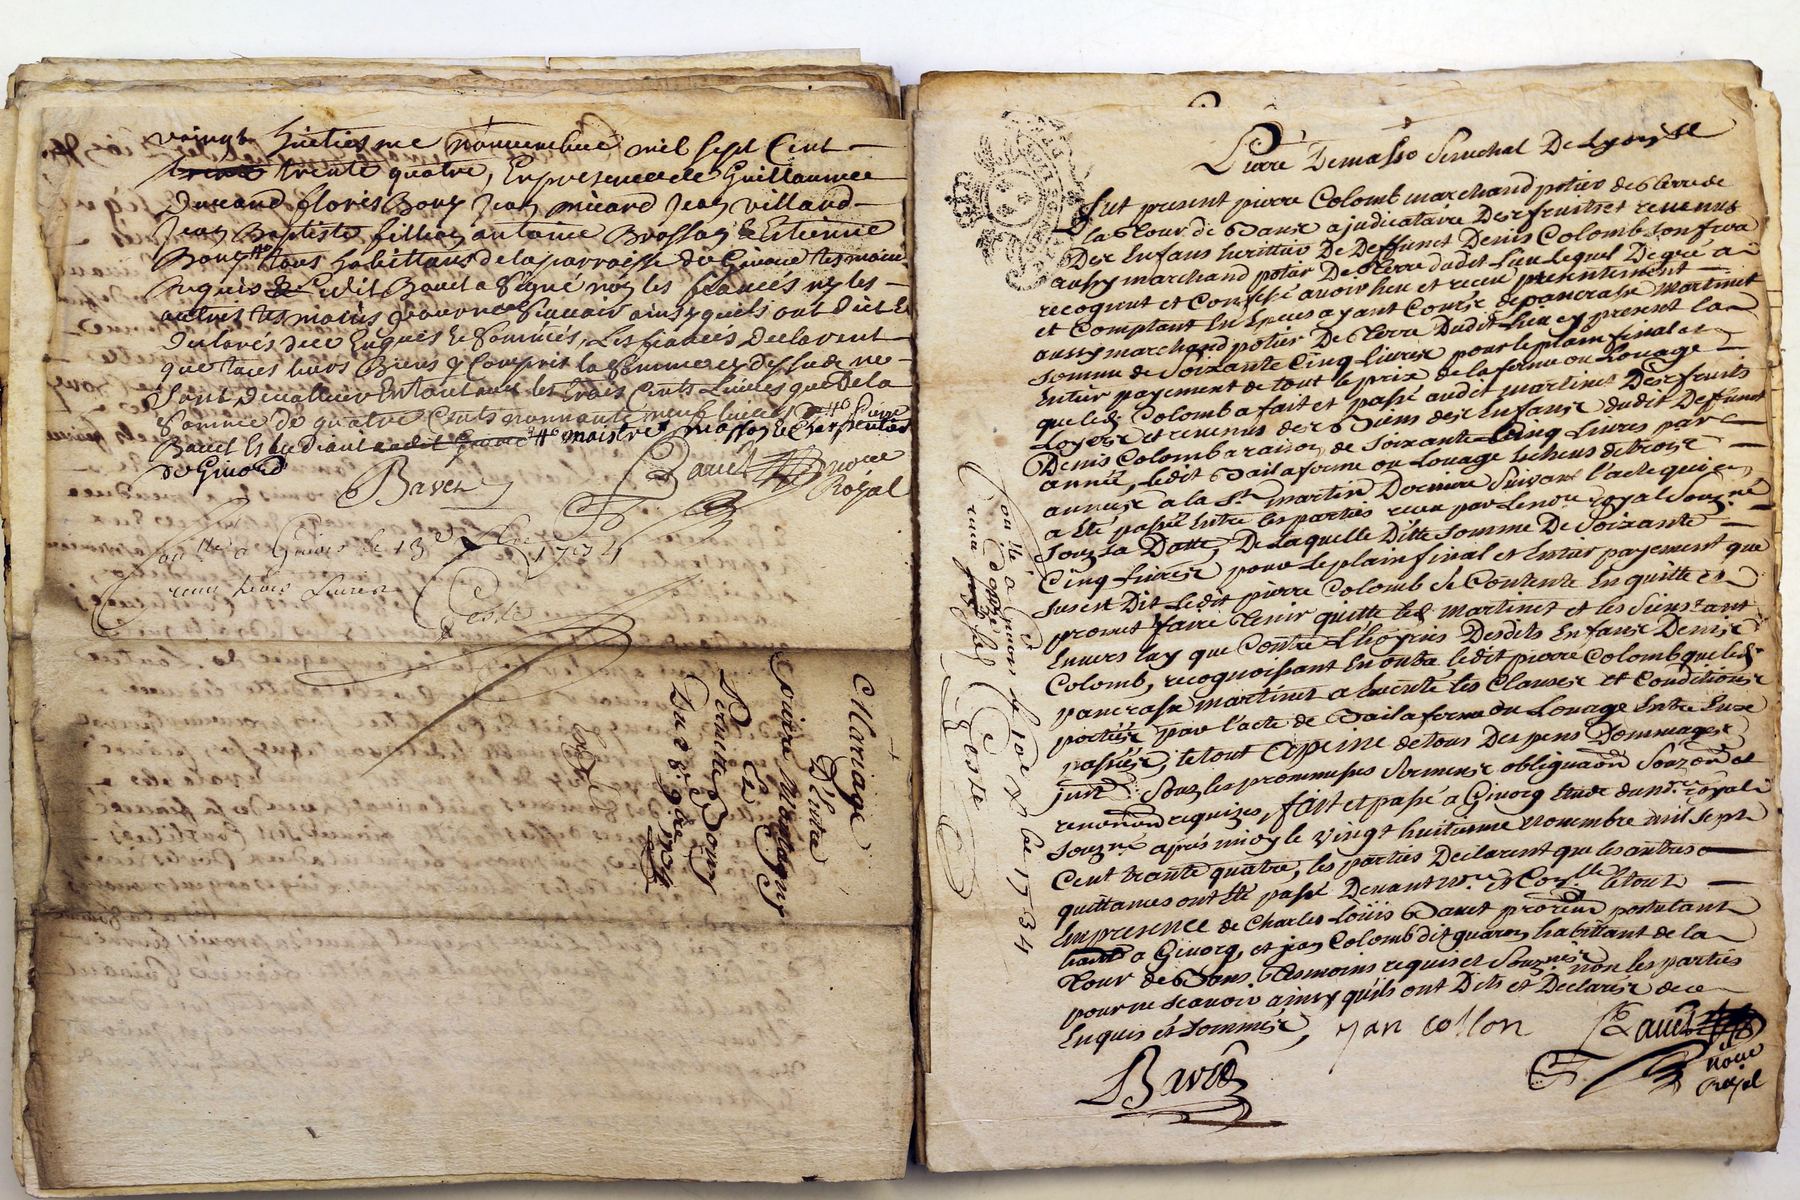 vaingt huitiesme novuembre mil sept Cent
trente quatre, En presence de Guillaume
Durand floris Bouy Jean micard Jean villard
Jean Baptiste fillion antoine Brossay & Estienne
Bouy tous habittans de la parroisse de Givors tesmoins
requis Ledit Bavet a Signé non les fiancés ny les
autres tesmoins pour ne Scavoir ainsy quils ont dit Et
declarés de ce Enquis Et Sommés, Les fiancés declarent
que tous leurs Biens y Compris la Somme cy dessus ne
Sont de valleur Entout que les trois Cents Livres que de la
Somme de quatre Cents nonnante neuf livres, Pierre
Bavet Estudiant maistre masson & Charpentier
de Givord
Bavet Bavet
no.re Royal
Con.lle a Givors le 13e Xbre 1734
Coste
Mariage
D'Entre
pierre Montagny
Et
Pernette Bouy
Du 28e 9bre 1734
Pierre Demasso Senechal De Lyon
fut present pierre Colomb marchand potier de terre de
la Tour de Banse ajudicataire Des fruits et revenus
Des Enfans herittier De Deffunct Denis Colomb Son frere
aussy marchand potier De terre dudit Lieu Lequel De gré a
recognut et Confessé avoir heu et receu presentement
et Comptant En Especes ayant Cours de pancrasse Martinet
aussy marchand potier De terre Dudit Lieu cy present la
somme de Soixante Cinq Livres pour le plain final et
Entier payement de tout le prix de la ferme ou Louage
que led. Colomb a fait et passé audit martinet Des fruits
Loyers et revenus des Biens des Enfans dudit Deffunct
Denis Colomb a raison de Soixante Cinq Livres par
année, ledit Bail a ferme ou Louage de trois
annees a la St. martin Derniere Suivant l'acte qui en
a Eté passé Entre les parties receu par Le no.re royal Souz.né
Souz Sa Datte, De laquelle Ditte Somme De Soixante
Cinq Livres pour le plain final et Entier payement que
Sus est Dit Ledit pierre Colomb Se Contente En quitte et
promet faire tenir quitte led. Martinet et les Siens tant
Envers luy que Contre L'hoyrie Desdits Enfans Denis
Colomb, recognoissant En outre ledit pierre Colomb que led.
pancrasse martinet a Executé les Clauses et Conditions
portées par l'acte de Bail a ferme ou Louage Entre Eux
passées, le tout a peine de tous Depens Dommages
just. Souz les prommesses Sermens obligaon Souzon et
renonon requizes, fait et passé a Givorz Etude du no.re royal
Souz.né apres midy le Vingt huitiesme Novembre mil Sept
Cent trante quatre, les parties Declarent que les autres
quittances ont Eté passé Devant no.re et Con.lle le tout
En presence de Charles Loüis Bavet postulant
a Givorz, et jean Colomb dit quaren, habittant de la
Tour de Bans. tesmoins requis et Souz.nés non les parties
pour ne Scavoir ainsy qu'ils ont Dits et Declarés de ce
Enquis et Sommés,
jan collon
Bavet Bavet
no.re
Royal
Con.lle a Givors le 10e Xbre 1734
Coste